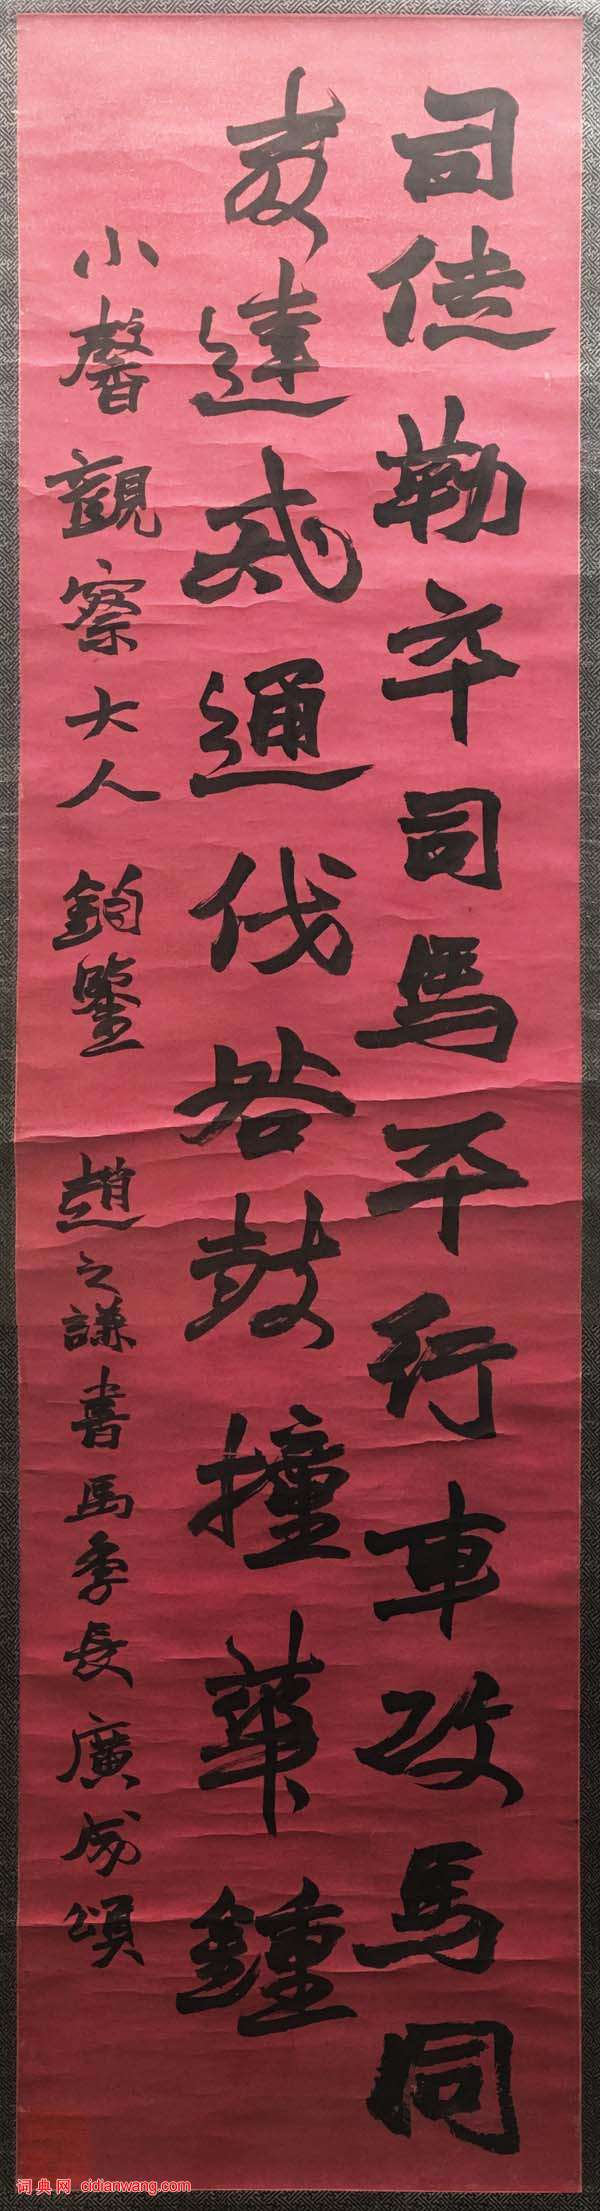 司徒勒卒司馬平行車攻馬同
教達戒通伐咎鼓撞華鍾
小馨觀察大人 鈞鑒 趙之謙書馬季長廣成頌
词典网 cidianwang.com